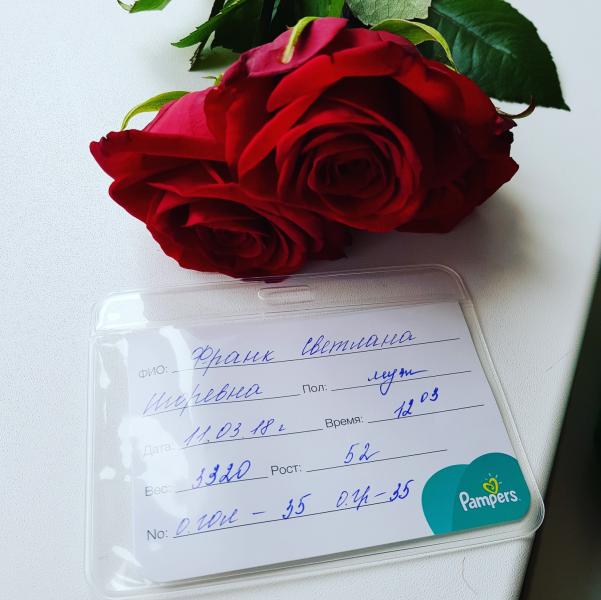 ФИО: Франк Светлана
Игоревна Пол: муж
Дата: 11.03.18 г Время: 12 03
Вес: 3320 Рост: 52
No: о.гол – 35 о.гр – 35
Pampers